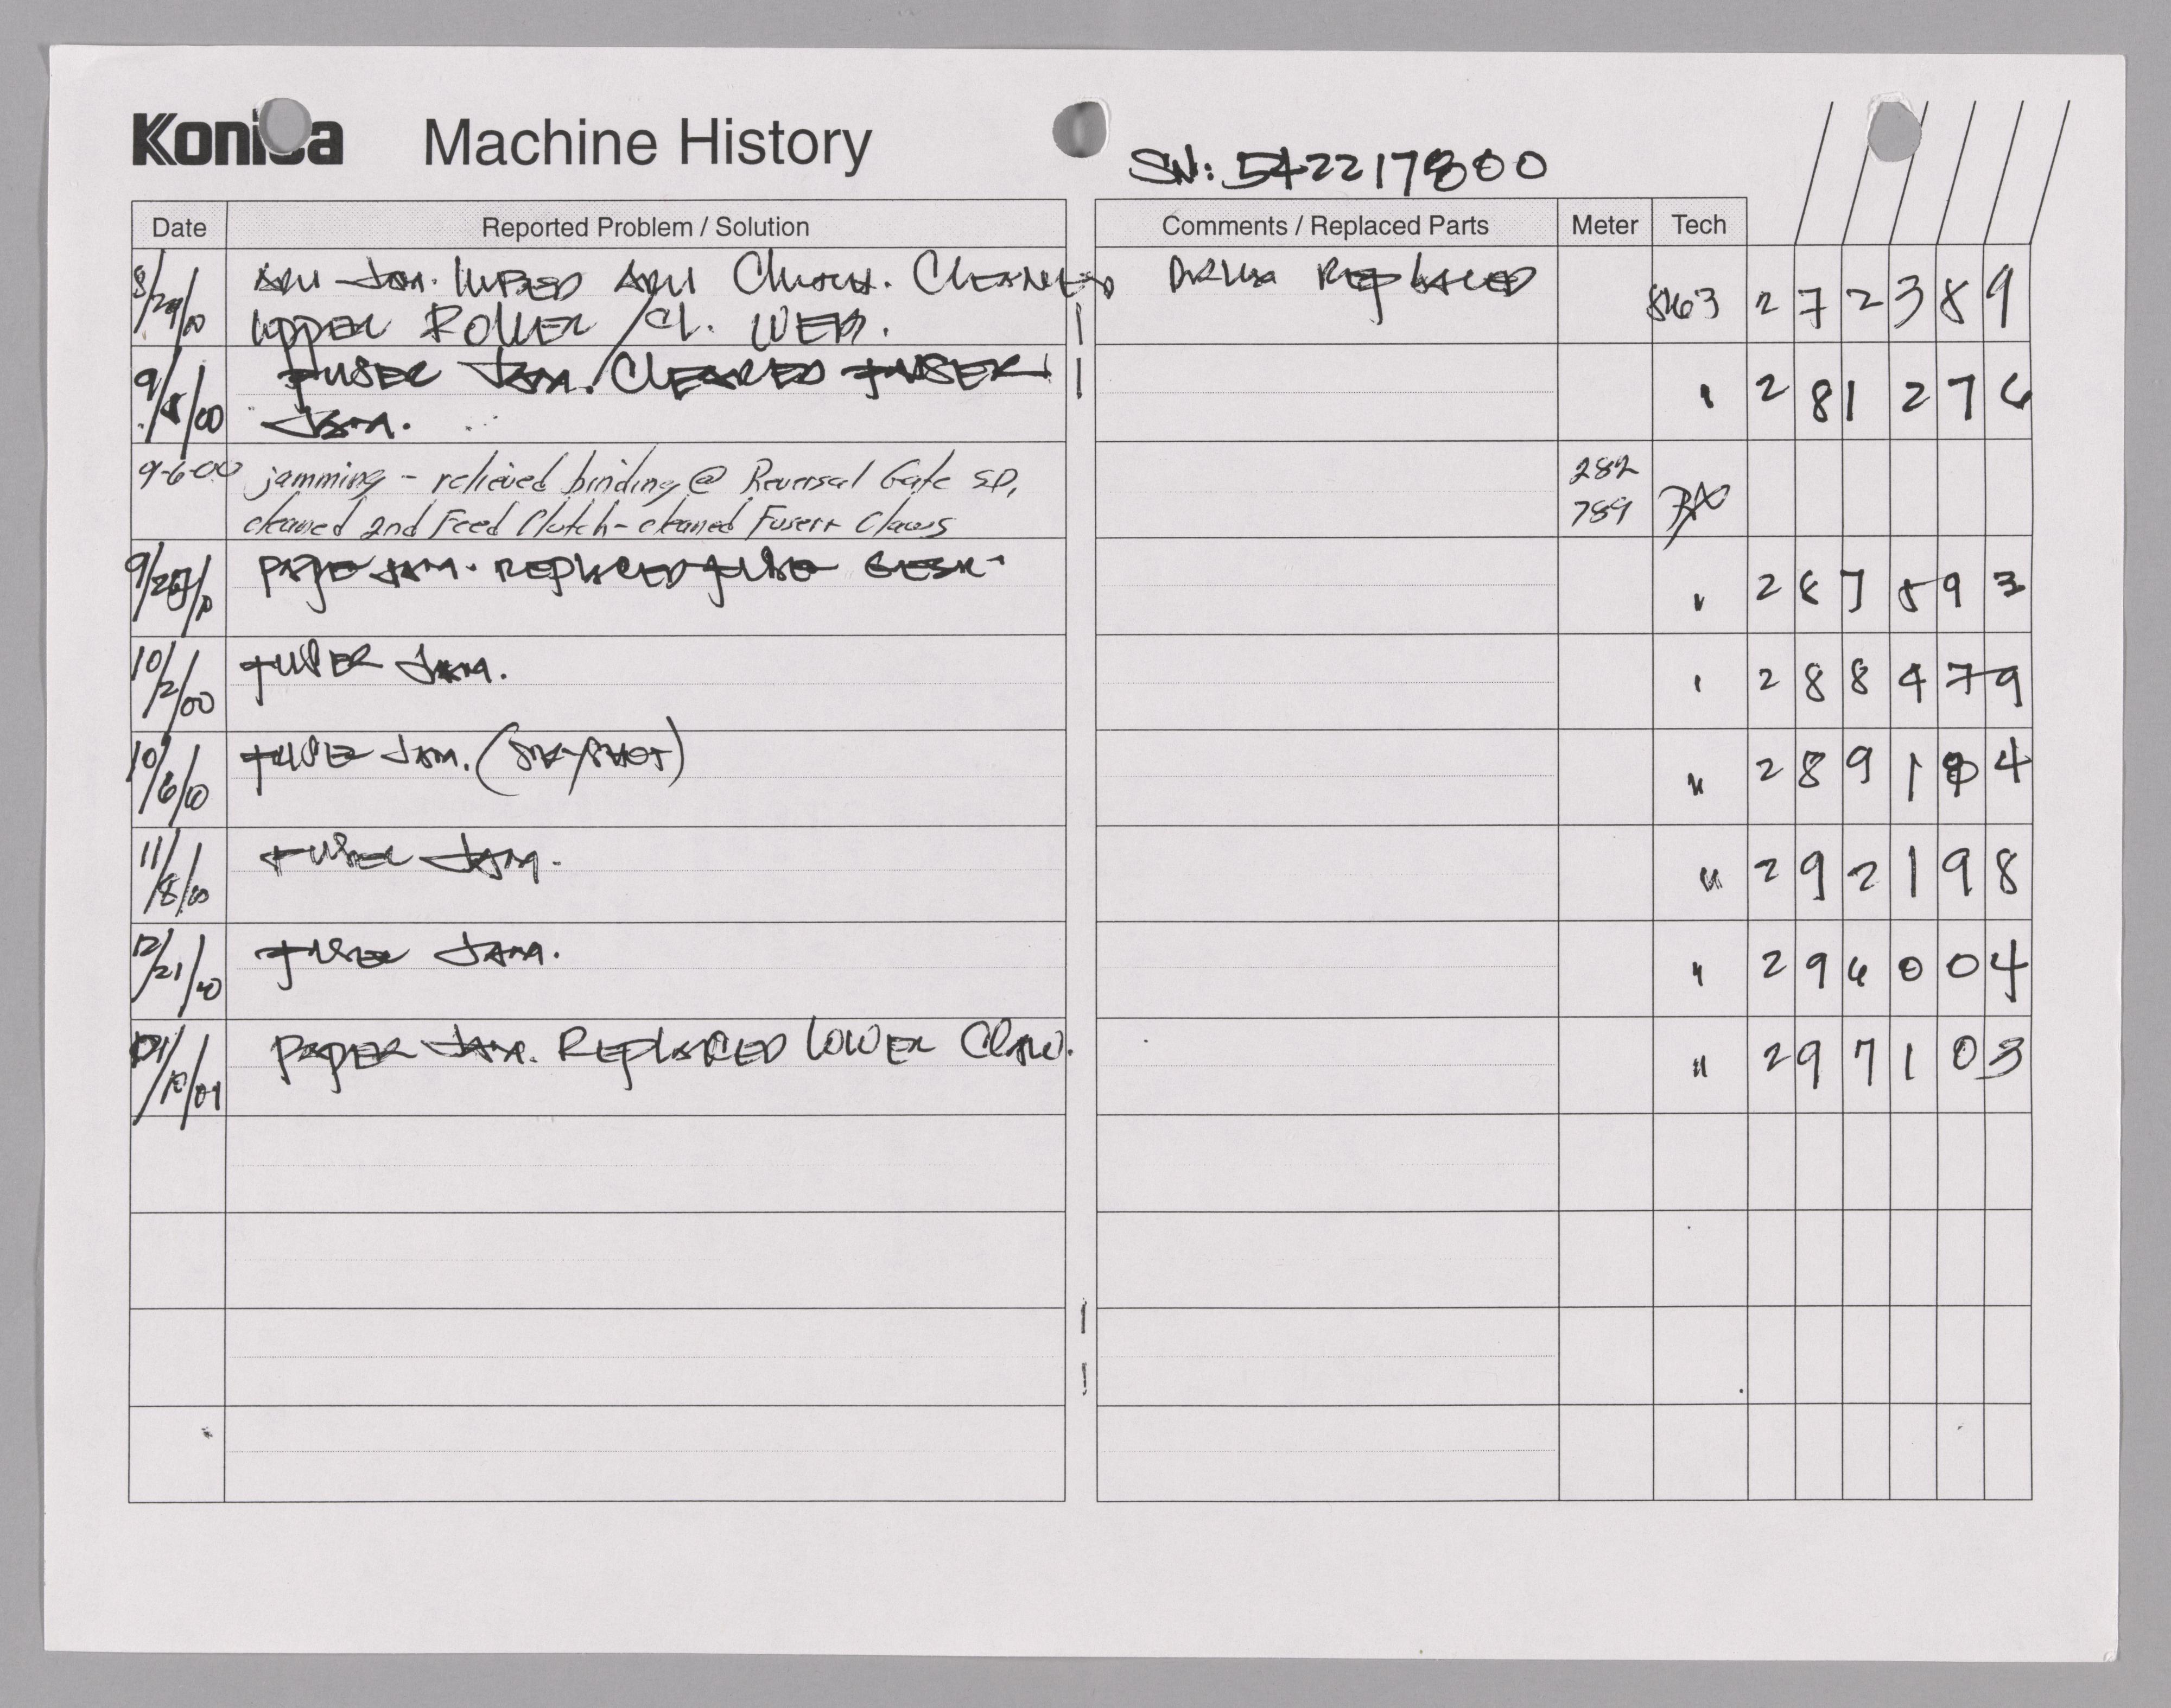 Konica Machine History
SN: 542217800
Date Reported Problem / Solution Comments / Replaced Parts Meter Tech
8/29/00 ADU JAM. WIPED ADU Clutch. CLEANED DRUM REPLACED 8463 2 7 2 3 8 9
UPPER ROLLER / Cl. WEB.
9/5/00 FUSER JAM. CLEARED FUSER 2 81 2 7 6
JAM.
9-6-00 jamming - relieved binding @ Reversal Gate SD, 282
cleaned 2nd Feed Clutch - cleaned Fuser Claws 789
PAPER JAM. REPLACED 2 8 7 5 9 3
10/2/00 FUSER JAM. " 2 8 8 4 7 9
10/6/00 FUSER JAM. " 2 8 9 1 4
11/8/00 FUSER JAM. " 2 9 2 1 9 8
12/21/00 FUSER JAM. " 2 9 6 0 0 4
1/10/01 PAPER JAM. REPLACED LOWER Claw. " 2 9 7 1 0 3